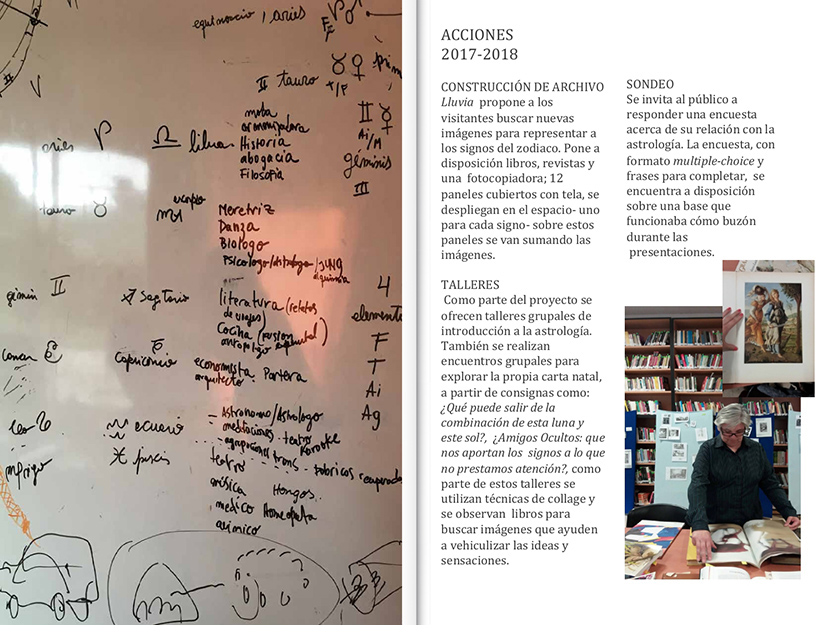 equinoccio / aries
II tauro ♉ ♀
moda
Historia
abogacía
Filosofía
aries ♈ ♎ libra
II ☿
Ai/M
géminis
III
tauro ♉ ♏
Meretriz
Danza
Biologo
Psicologo/astrologo/JUNG
alquimia
II ♐ Sagitario
literatura (relatos
de viajes)
Cocina
4
elementos
F
T
Ai
Ag
Capricornio
economista. Partera
arquitecto
leo ♌ ♒ acuario
Astronomo/Astrologo
mediaciones - teatro
Karaoke
agrupaciones trans.
♓ piscis
teatro
música Hongos.
medico Homeopata
ACCIONES
2017-2018
CONSTRUCCIÓN DE ARCHIVO
Lluvia propone a los
visitantes buscar nuevas
imágenes para representar a
los signos del zodiaco. Pone a
disposición libros, revistas y
una fotocopiadora; 12
paneles cubiertos con tela, se
despliegan en el espacio- uno
para cada signo- sobre estos
paneles se van sumando las
imágenes.
TALLERES
Como parte del proyecto se
ofrecen talleres grupales de
introducción a la astrología.
También se realizan
encuentros grupales para
explorar la propia carta natal,
a partir de consignas como:
¿Qué puede salir de la
combinación de esta luna y
este sol?, ¿Amigos Ocultos: que
nos aportan los signos a lo que
no prestamos atención?, como
parte de estos talleres se
utilizan técnicas de collage y
se observan libros para
buscar imágenes que ayuden
a vehiculizar las ideas y
sensaciones.
SONDEO
Se invita al público a
responder una encuesta
acerca de su relación con la
astrología. La encuesta, con
formato multiple-choice y
frases para completar, se
encuentra a disposición
sobre una base que
funcionaba cómo buzón
durante las
presentaciones.